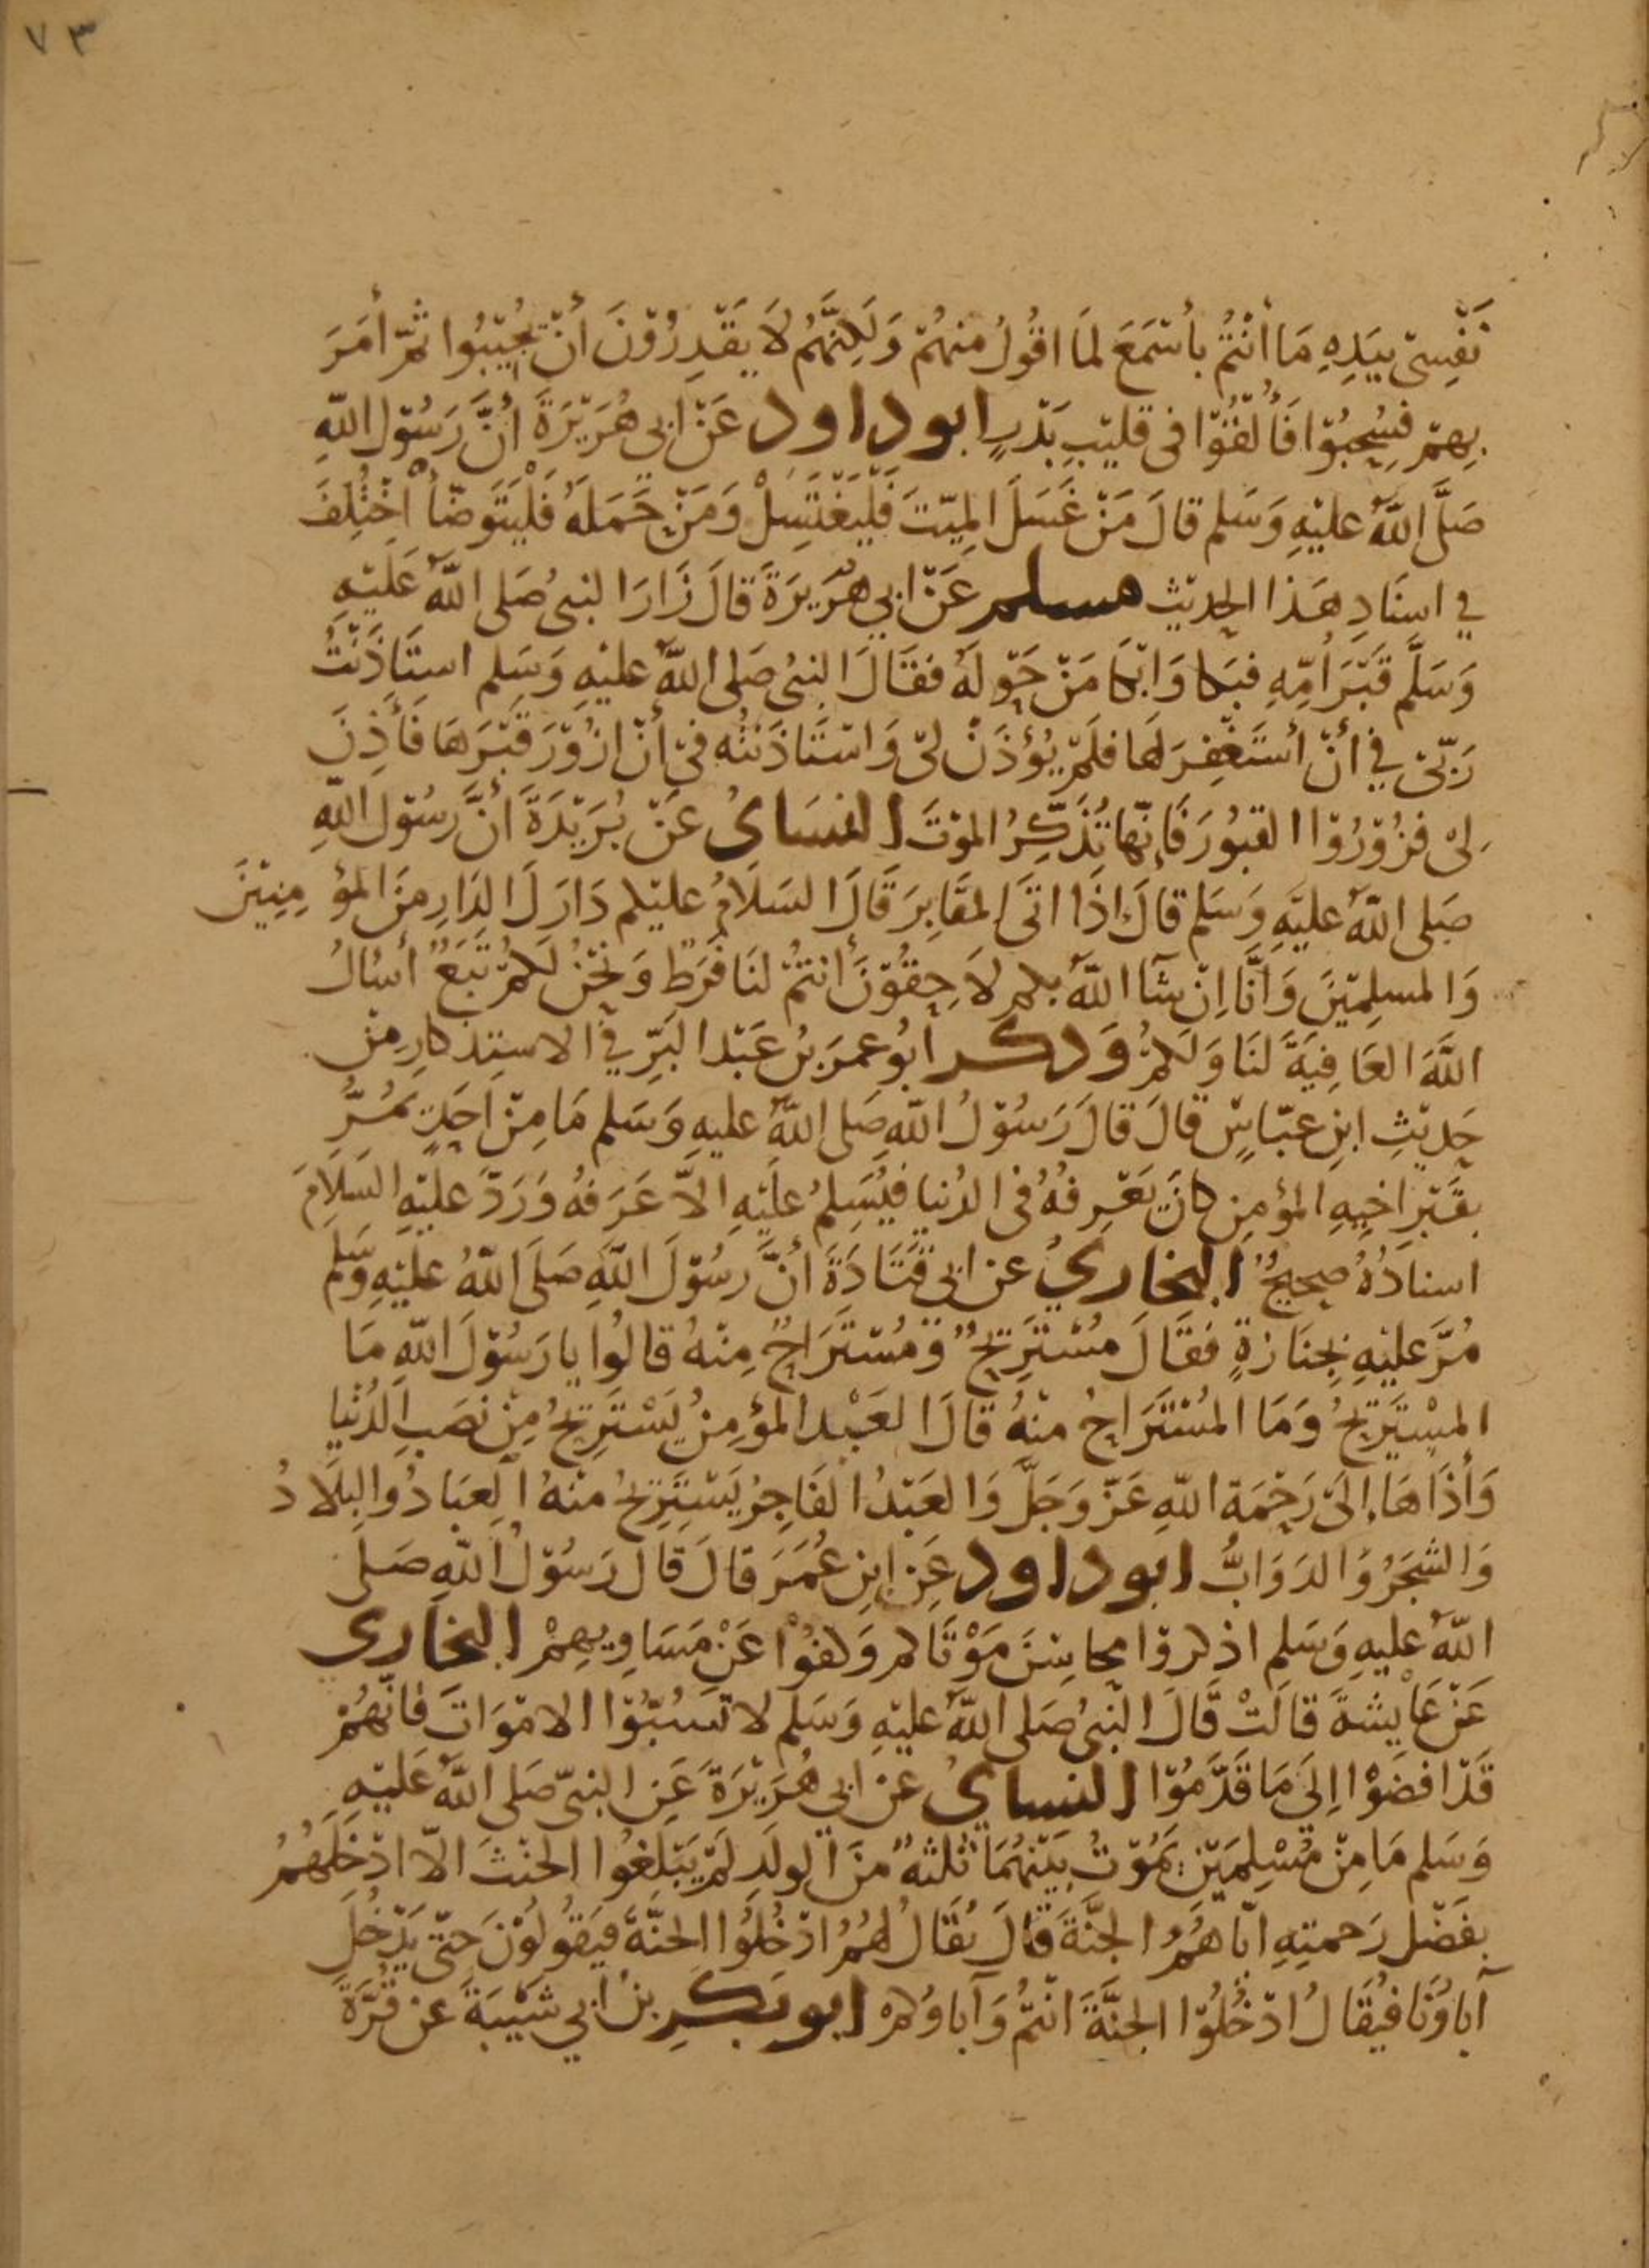 ٧٣
نَفْسِيْ بِيَدِهِ مَا أَنْتُمْ بِأَسْمَعَ لِمَا اقُولُ مِنْهُمْ وَلَكِنَّهُمْ لَا يَقْدِرُوْنَ أَنْ يُجِيْبُوا ثُمَّ أَمَرَ
بِهِمْ فَسُحِبُوْا فَأُلْقُوْا فى قَلِيْبِ بَدْرٍ ابو داود عَنْ ابى هُرَيْرَةَ أَنَّ رَسُوْلَ اللّهِ
صَلَّى اللهُ عليْهِ وَسَلم قالَ مَنْ غَسَلَ الميّتَ فَلْيَغْتَسِلْ وَمَنْ حَمَلَهُ فَلْيَتَوَضّأْ اخْتُلِفَ
في اسنَادِ هَذا الحديْث مسلم عَنْ ابي هُرَيرَةَ قالَ زَارَ النبىُ صَلى اللهُ عَليْهِ
وَسَلَّم قَبْرَ أُمِّهِ فبَكا وَابْكَا مَنْ حَوْلَهُ فقَالَ النبىُ صَلى اللهُ عليْهِ وَسَلم استَاذَنْتُ
رَبّىْ في أنْ أسْتَغْفِرَ لهَا فلَمْ يُؤْذَنْ لىْ وَاسْتَاذَنْتُه فيْ أنْ ازُوْرَ قَبْرَهَا فَأُذِنَ
لِىْ فزُوْرُوْا القبُورَ فَإِنّهَا تُذَكِّرُ الموْتَ النسَائُ عَنْ بُرَيْدَةَ أَنَّ رسُوْلَ اللّهِ
صَلى اللهُ عليْهِ وَسَلم قالَ اذَا اتَى المقَابِرَ قَالَ السَلَامُ عليْكم دَارَ لَ الدَارِ مِنَ المؤمِنِيْنَ
وَالمسلِمِيْنَ وَأنَّا إنْ شَآ اللهُ بكم لَاحِقُوْنَ أنْتُمْ لنَا فَرَطٌ وَنَحْنُ لَكُمْ تَبَعٌ أسْالُ
اللَّهَ العَافِيَةَ لنَا وَلَكُمْ وَذكر ابُو عمَرَ بنُ عَبْدِ البَرِّ في الاستِذكارِ مِنْ
حَدِيْثِ ابنِ عبّاسٍ قالَ قالَ رَسُوْلُ اللّهِ صَلى اللهُ عليهِ وَسَلم مَا مِنْ احَدٍ يَمُرُّ
بقَبْرِ اخِيهِ المؤمِنِ كانَ يَعْرِفُهُ فى الدُنيا فيُسَلمُ عليْهِ الاّ عَرَفَهُ وَرَدَّ عليْهِ السَلَامَ
اسنادُهُ صحِيحٌ البخَاريُ عن ابى قَتَادَةَ أنَّ رسُوْلَ اللّهِ صَلَى اللهُ عليْهِ وَسَلم
مُرَّ عليْهِ بجِنَازَةٍ فقَالَ مُسْتَرِيحٌ وَمُسْتَرَاحٌ مِنْهُ قالُوا يا رَسُوْلَ اللّهِ مَا
المسْتَرِيْحُ وَمَا المُسْتَرَاحُ منْهُ قالَ العَبْد المؤمِنُ يَسْتَرِيْحُ مِنْ نَصَبِ الدُنْيَا
وَأذَاهَا إلىَ رَحْمَة اللّهِ عَزّ وَجَلَّ وَالعَبْدُ الفَاجِرُ يَسْتَرِيْحُ منْهُ العِبَادُ وَالبِلَادُ
وَالشجَرُ وَالدَوَابُّ ابو داود عَن ابنِ عُمَرَ قالَ قالَ رَسُوْلُ اللّهِ صَلى
اللهُ عليهِ وَسَلم اذكروْا محَاسِنَ مَوْتَاكم وَكفوْا عَنْ مَسَاوِيهِمْ البخاري
عَنْ عَايشةَ قالَتْ قَالَ النبىُ صَلى اللهُ عليْهِ وَسَلم لا تَسُبّوْا الامْوَاتَ فانّهُمْ
قَدْ افضَوْا إلىَ مَا قَدَّمُوْا النسايُ عن ابي هُرَيْرَةَ عَنِ النبىّ صَلى اللهُ عَليْهِ
وَسَلم مَا مِنْ مُسْلِمَيْنِ يَمُوْتُ بيْنَهُمَا ثلثةٌ منَ الولَدِ لَمْ يَبْلغُوا الحنْثَ الاّ ادْخَلَهُمُ
بفَضْلِ رَحمتِهِ ايّاهُمُ الجنَّةَ قالَ يُقَالُ لهُمُ ادْخُلُوا الجنّةَ فيَقُولوْنَ حتّى يَدْخُلَ
آباؤنَا فيُقَالُ ادْخُلُوْا الجنَّةَ انْتُمْ وَآباوُكمْ ابو بكرِ بنُ ابي شيْبَةَ عَن قُرَّةَ